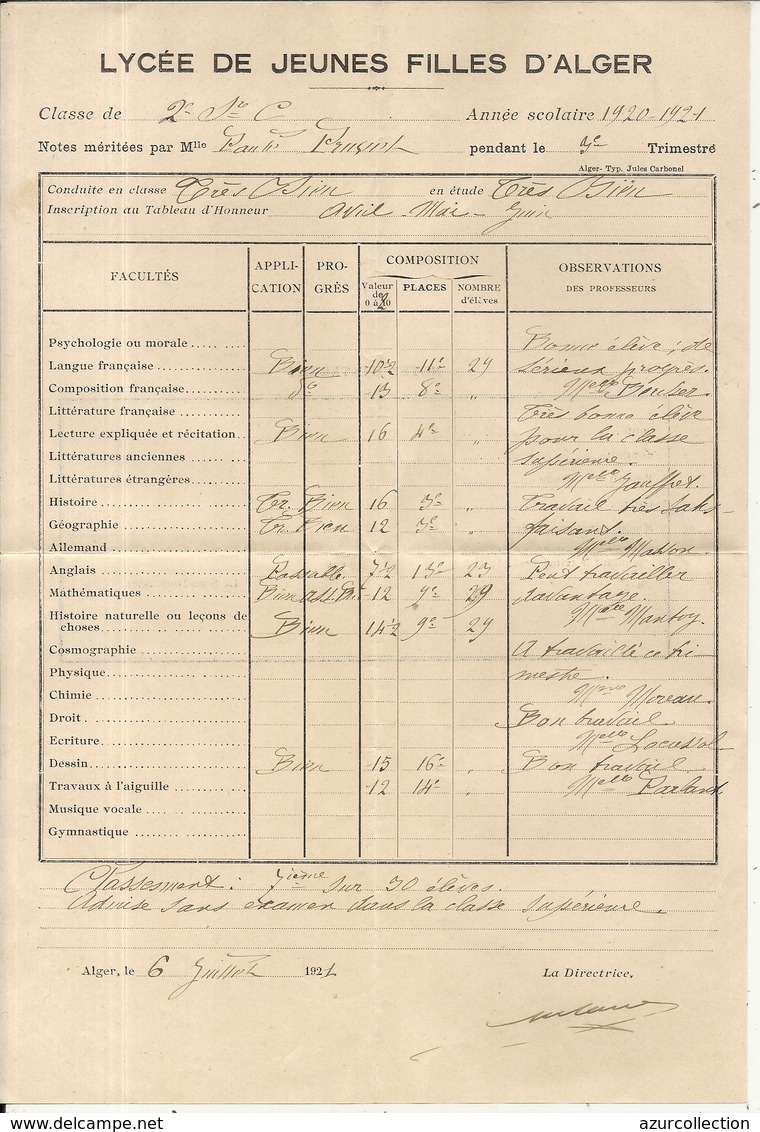 LYCÉE DE JEUNES FILLES D'ALGER
Classe de 2e C Année scolaire 1920-1921
Notes méritées par Mlle pendant le 3e Trimestre
Alger- Typ. Jules Carbonel
Conduite en classe Très Bien en étude Très Bien
Inscription au Tableau d'Honneur Avril - Mai - Juin
FACULTÉS APPLI-CATION PRO-GRÈS COMPOSITION OBSERVATIONS DES PROFESSEURS
Valeur de 0 à 20 PLACES NOMBRE d'élèves
Psychologie ou morale Bonne élève ; de
Langue française Bien 10½ 11e 29 sérieux progrès.
Composition française do 13 8e " Melle
Littérature française Très bonne élève
Lecture expliquée et récitation Bien 16 4e " pour la classe
Littératures anciennes supérieure.
Littératures étrangères Melle Jauffret.
Histoire Tr. Bien 16 3e " Travail très satis-
Géographie Tr. Bien 12 3e " faisant.
Allemand Melle Masson.
Anglais Passable 7½ 13e 23 Peut travailler
Mathématiques Bien ass. Bi. 12 9e 29 davantage.
Histoire naturelle ou leçons de Melle Mantoy
choses Bien 14½ 9e 29
Cosmographie A travaillé ce tri-
Physique mestre.
Chimie Mme Moreau.
Droit Bon travail
Ecriture Melle
Dessin Bien 15 16e " Bon travail.
Travaux à l'aiguille 12 14e " Melle Parlant
Musique vocale
Gymnastique
Classement : 7ième sur 30 élèves.
Admise sans examen dans la classe supérieure.
Alger, le 6 Juillet 1921 La Directrice,
azurcollection